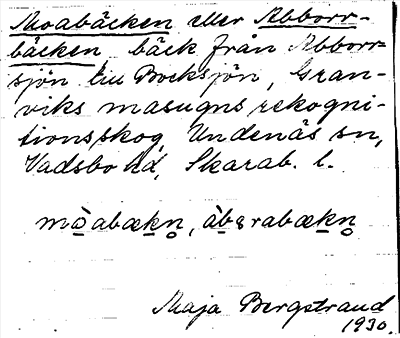 Moabäcken eller Abborr-
bäcken, bäck från Abborr-
sjön till Bocksjön, Gran-
viks masugns rekogni-
tionsskog, Undenäs sn,
Vadsbo hd, Skarab. l.
Maja Bergstrand
1930.